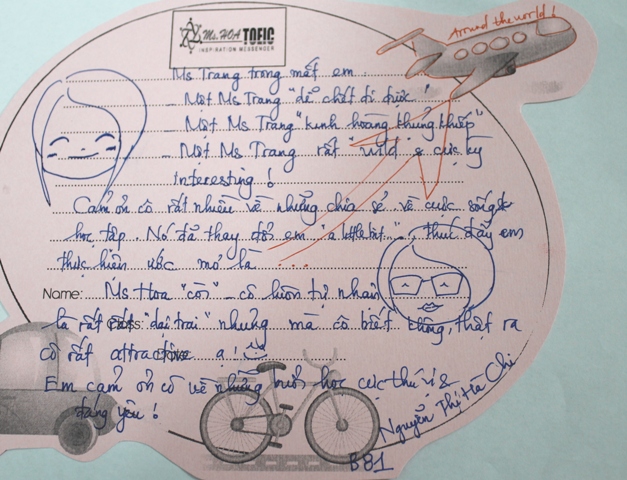 Ms. HOA TOEIC
INSPIRATION MESSENGER
Around the world!
Ms Trang trong mắt em
_ Một Ms Trang "dễ chết đi được"
_ Một Ms Trang "kinh hoàng khủng khiếp"
_ Một Ms Trang rất "wild" & cực kỳ
interesting!
Cảm ơn cô rất nhiều về những chia sẻ về cuộc sống &
học tập. Nó đã thay đổi em "a little bit"..., thúc đẩy em
thực hiện ước mơ là ....
Name: Ms Hoa "còi" _ cô luôn tự nhận
là rất "dại trai" nhưng mà cô biết không, thật ra
cô rất attractive ạ!
Em cảm ơn cô về những buổi học cực thú vị &
đáng yêu!
Nguyễn Thị Hà Chi
B81